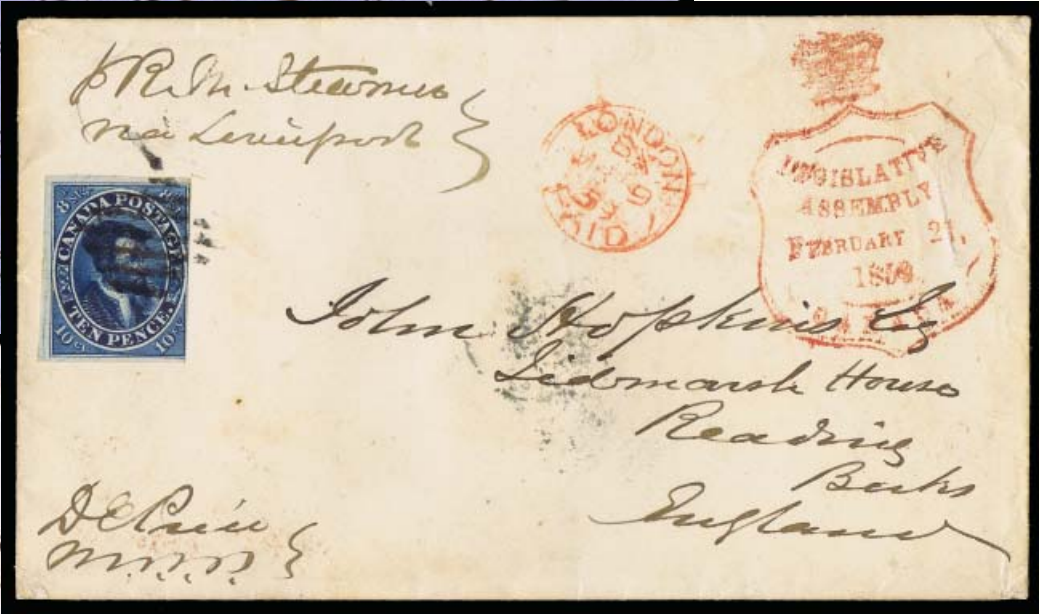 p R. M. Steamer
via Liverpool
8 Stg.
CANADA POSTAGE
TEN PENCE.
10 cy
10 cy
LONDON
9
59
PAID
LEGISLATIVE
ASSEMBLY
FEBRUARY 21,
1859
CANADA
John Hopkins Esq
Tidmarsh House
Reading
Berks
England
D E Price
M.P.P.